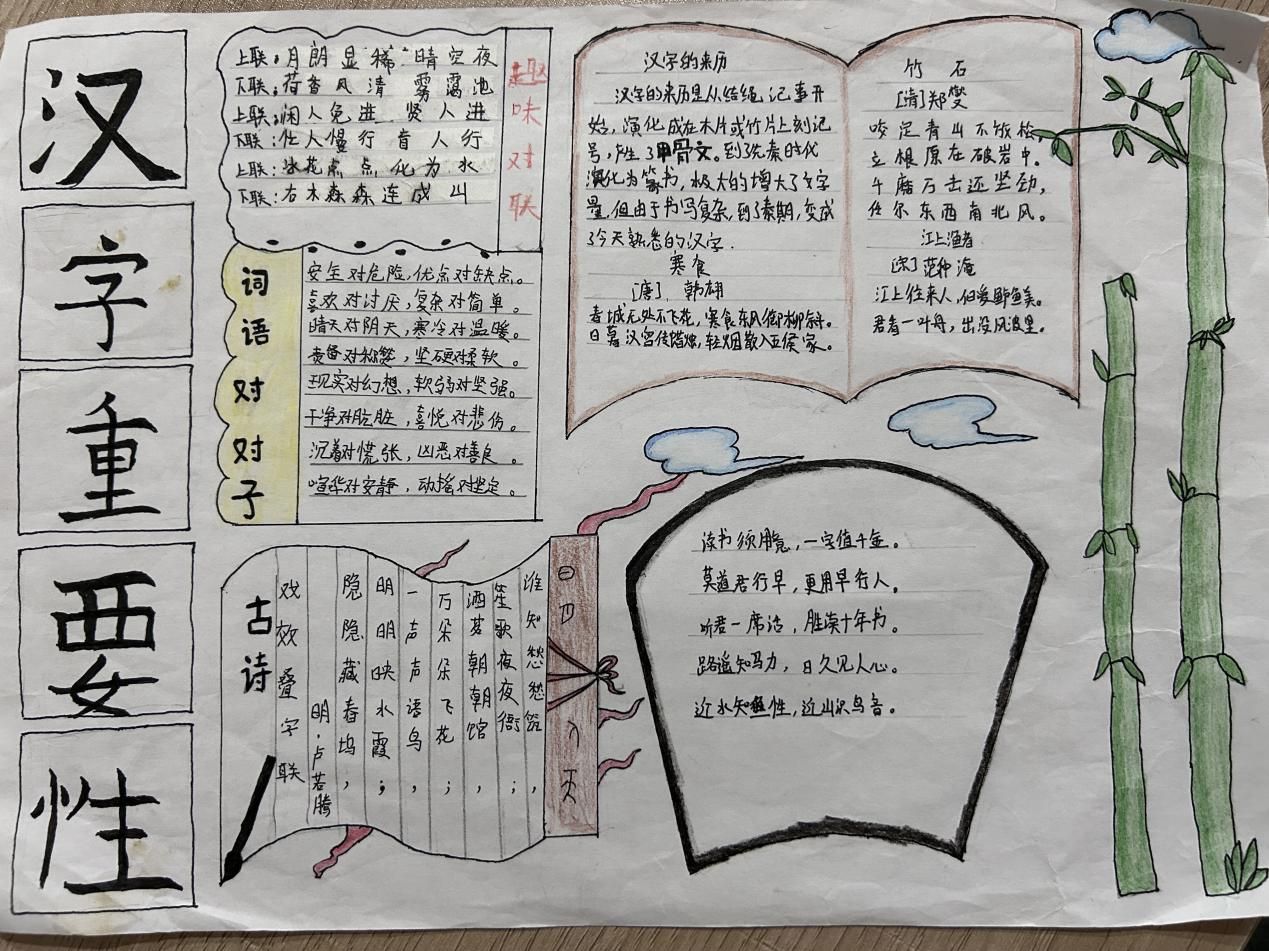 汉
字
重
要
性
上联:月朗显稀 晴空夜
下联:荷香风清 雾霭池
上联:闲人免进 贤人进
下联:仕人慢行 盲人行
上联:冰花点点化为水
下联:右木森森连成山
趣味对联
词语对对子
安全对危险,优点对缺点。
喜欢对讨厌,复杂对简单。
晴天对阴天,寒冷对温暖。
责备对称赞,坚硬对柔软。
现实对幻想,软弱对坚强。
干净对肮脏,喜悦对悲伤。
沉着对慌张,凶恶对善良。
喧华对安静,动摇对坚定。
汉字的来历
汉字的来历是从结绳记事开
始,演化成在木片或竹片上刻记
号,产生了甲骨文。到了先秦时代
演化为篆书,极大的增大了文字
量,但由于书写复杂,到了秦期,变成
了今天熟悉的汉字.
寒食
[唐]、韩翃
春城无处不飞花,寒食东风御柳斜。
日暮汉宫传蜡烛,轻烟散入五侯家。
竹石
[清]郑燮
咬定青山不放松
立根原在破岩中。
千磨万击还坚劲,
任尔东西南北风。
江上渔者
[宋]范仲淹
江上往来人,但爱鲈鱼美。
君看一叶舟,出没风波里。
古诗
戏效叠字联
明·卢若腾
隐隐藏春坞,
明明映水霞;
一声声语鸟,
万朵朵飞花;
酒茗朝朝馆,
笙歌夜夜衙;
谁知愁愁筑,
日
入
天
读书须用意,一字值千金。
莫道君行早,更用早行人。
听君一席话,胜读十年书。
路遥知马力,日久见人心。
近水知鱼性,近山识鸟音。